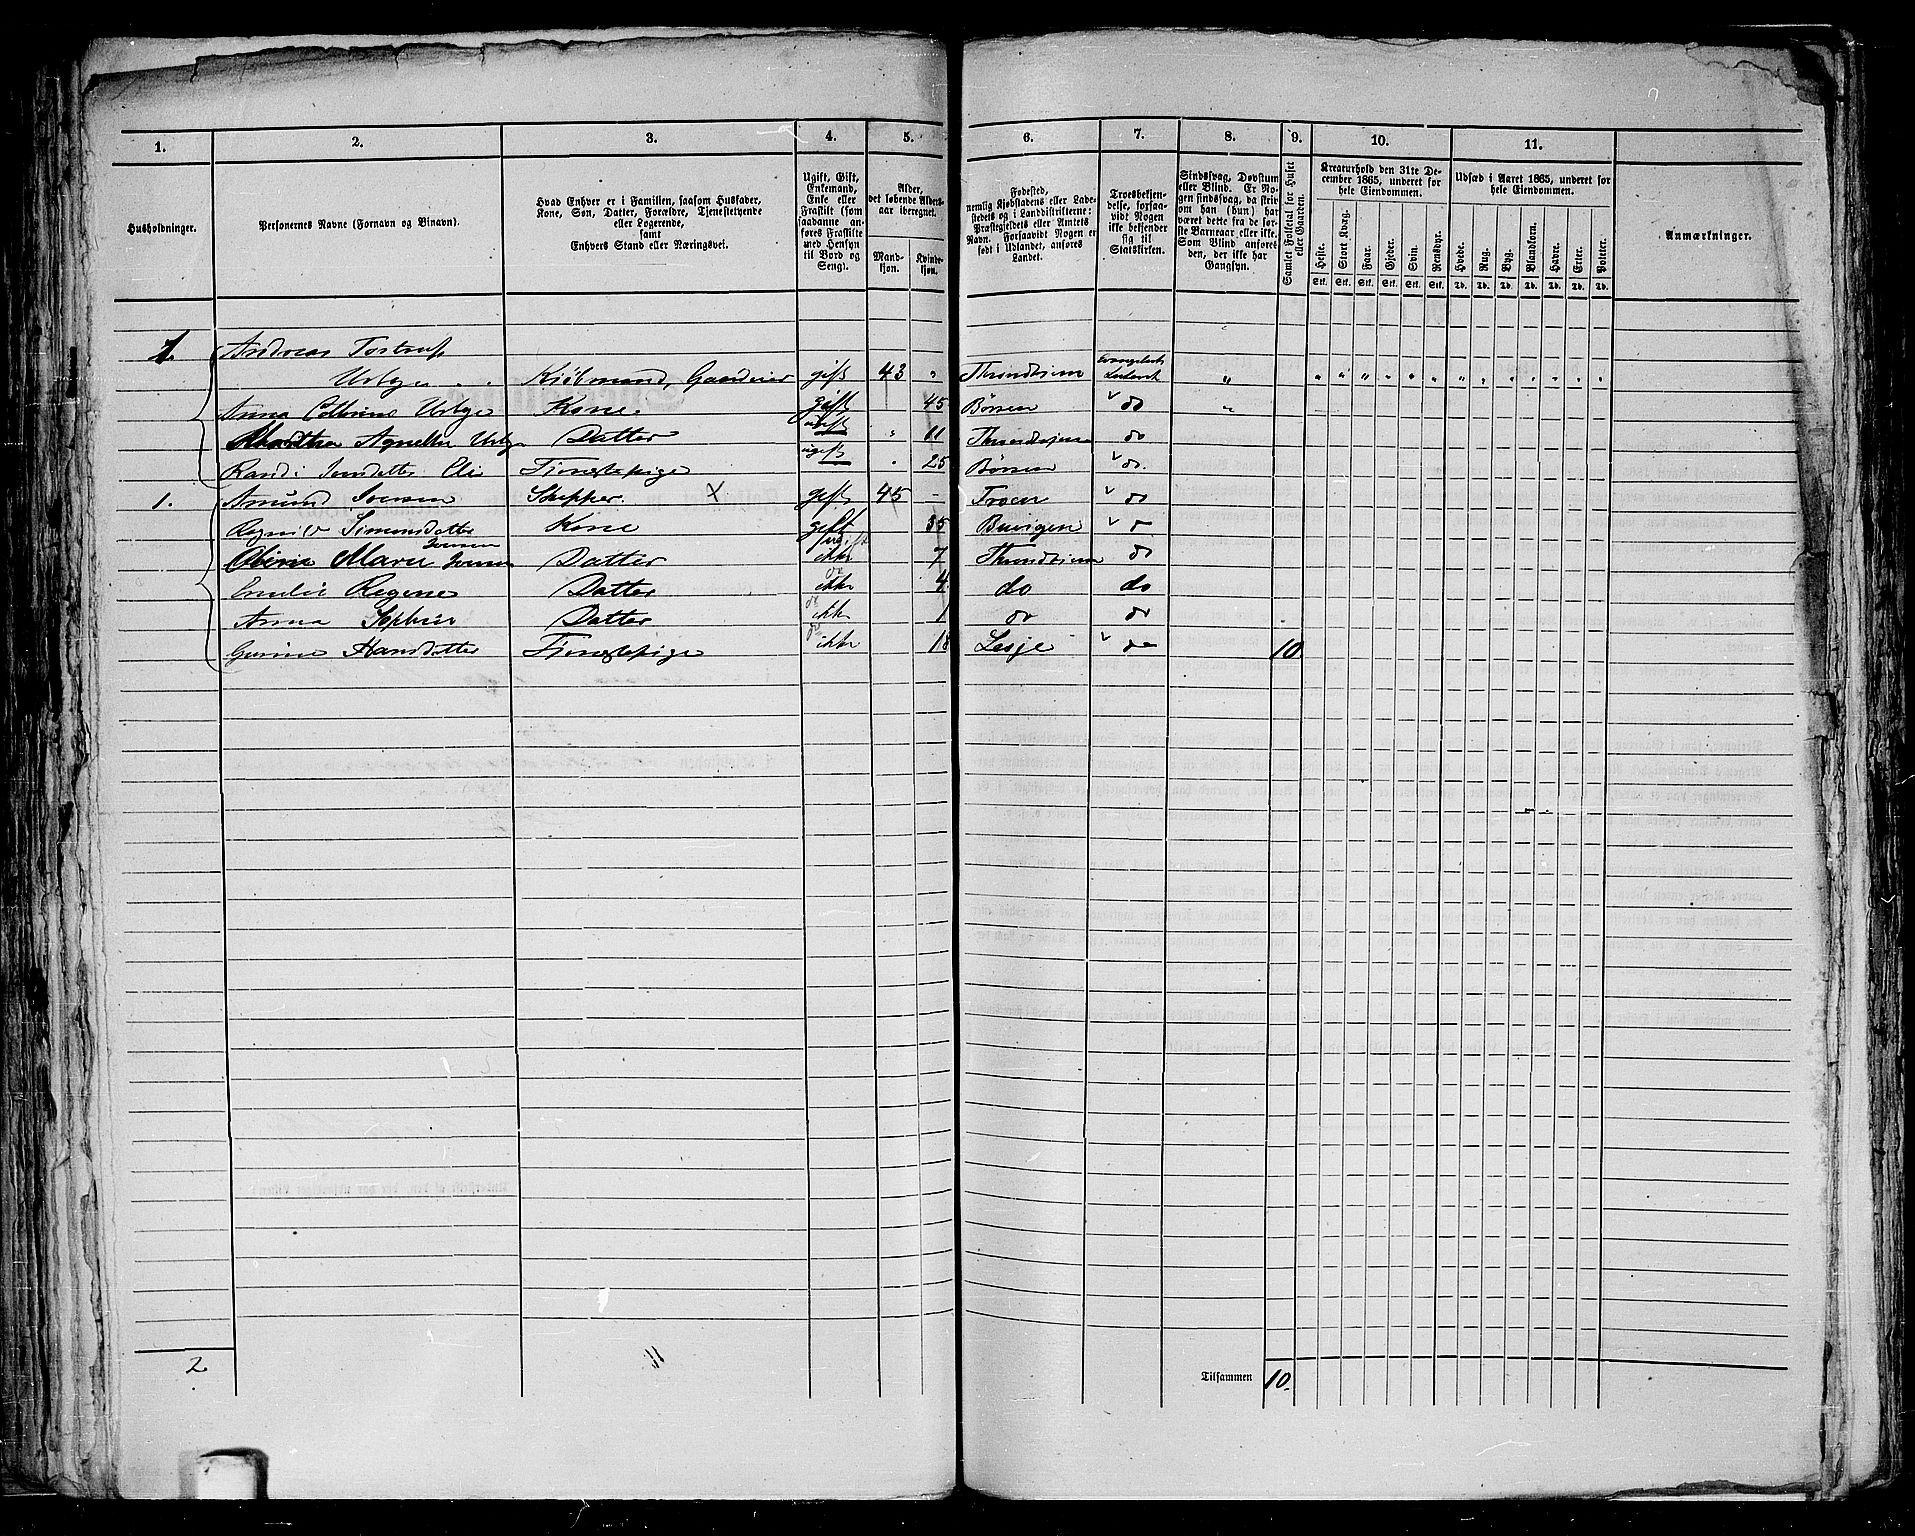 1. 2. 3. 4. 5. 6. 7. 8. 9. 10. 11.
Husholdninger.
Personernes Navne (Fornavn og Binavn).
Hvad Enhver er i Familien, saasom Husfader,
Kone, Søn, Datter, Forældre, Tjenestetyende
eller Logerende,
samt
Enhvers Stand eller Næringsvei.
Ugift, Gift,
Enkemand,
Enke eller
Fraskilt (som
saadanne an-
føres Fraskilte
med Hensyn
til Bord og
Seng).
Alder,
det løbende Alders-
aar iberegnet.
Mand-
kjøn.
Kvinde-
kjøn.
Fødested,
nemlig Kjøbstadens eller Lade-
stedets og i Landdistrikterne:
Præstegjeldets eller Amtets
Navn. Forsaavidt Nogen er
født i Udlandet, anføres
Landet.
Troesbekjen-
delse, forsaa-
vidt Nogen
ikke bekjender
sig til
Statskirken.
Sindssvag, Døvstum
eller Blind. Er No-
gen sindssvag, da skriv
om han (hun) har
været dette fra de før-
ste Barneaar eller ikke.
Som Blind anføres
den, der ikke har
Gangsyn.
Samlet Folketal for Huset
eller Gaarden.
Kreaturhold den 31te De-
cember 1865, underet for
hele Eiendommen.
Heste. Stort Kvæg. Faar. Gjeder. Svin. Rensdyr.
Stk. Stk. Stk. Stk. Stk. Stk.
Udsæd i Aaret 1865, underet for
hele Eiendommen.
Hvede. Rug. Byg. Blandkorn. Havre. Erter. Poteter.
Td. Td. Td. Td. Td. Td. Td.
Anmærkninger.
1. Andreas Tostrup
Urbye Kjøbmand, Gaardeier gift 43 " Throndhjem Evangelisk Luthersk " " " " " " " " " " " " " "
Anna Cathrine Urbye Kone. gift 45 Børsen do "
Agnette Urbye Datter ugift " 11 Throndhjem do
Randi Datter Tjenestepige ugift " 25 Børsen do.
1. Amund Iversen Skipper X gift 45 - do
Simonsdatter Kone gift 35 Buvigen do
Marie Iversen Datter ikke gift 7 Throndhjem do
Emilie Regine Datter ikke do 4 do do
Anna Sophie Datter ikke do 1 do do
Gurine Hansdatter Tjenestepige ikke do 18 Lesje do 10
2
Tilsammen 10.